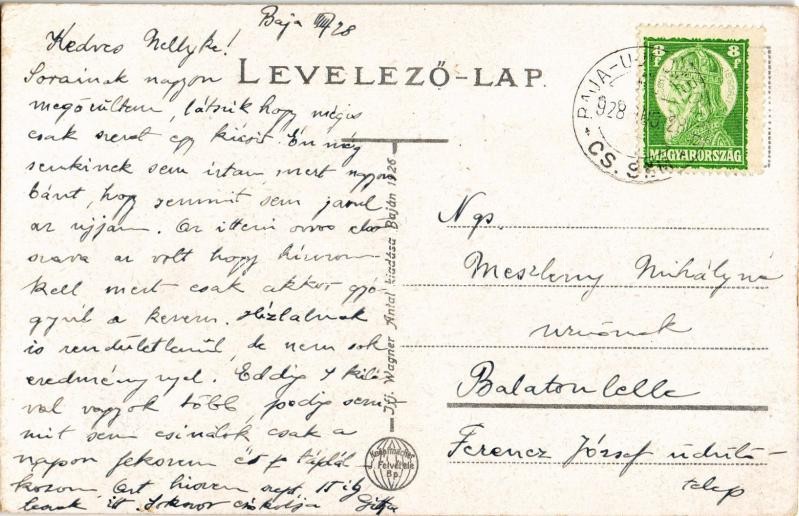 Baja VIII/28
Kedves Nellyke!
Sorainak nagyon
megörültem, látszik hogy mégis
csak szeret egy kicsit. Én még
senkinek sem írtam mert nagyon
bánt, hogy semmit sem javul
az ujjam. Az itteni orvos első
szava az volt hogy híznom
kell mert csak akkor gyó-
gyúl a kezem. Hízlalnak
is rendületlenül, de nem sok
eredménnyel. Eddig 1 kiló-
val vagyok több, pedig sem-
mit sem csinálok csak a
napon fekszem és táplál-
kozom. Azt hiszem szept. 15 ig
leszek itt. Sokszor csókolja Gitta
LEVELEZŐ-LAP.
Ifj. Wagner Antal kiadása Baján 1926
Felvétele
Bp.
8 f 8 f
MAGYARORSZÁG
BAJA-UJ
928
CS. S
Ngs.
Meszleny Mihályné
urnőnek
Balatonlelle
Ferencz József üdülő-
telep